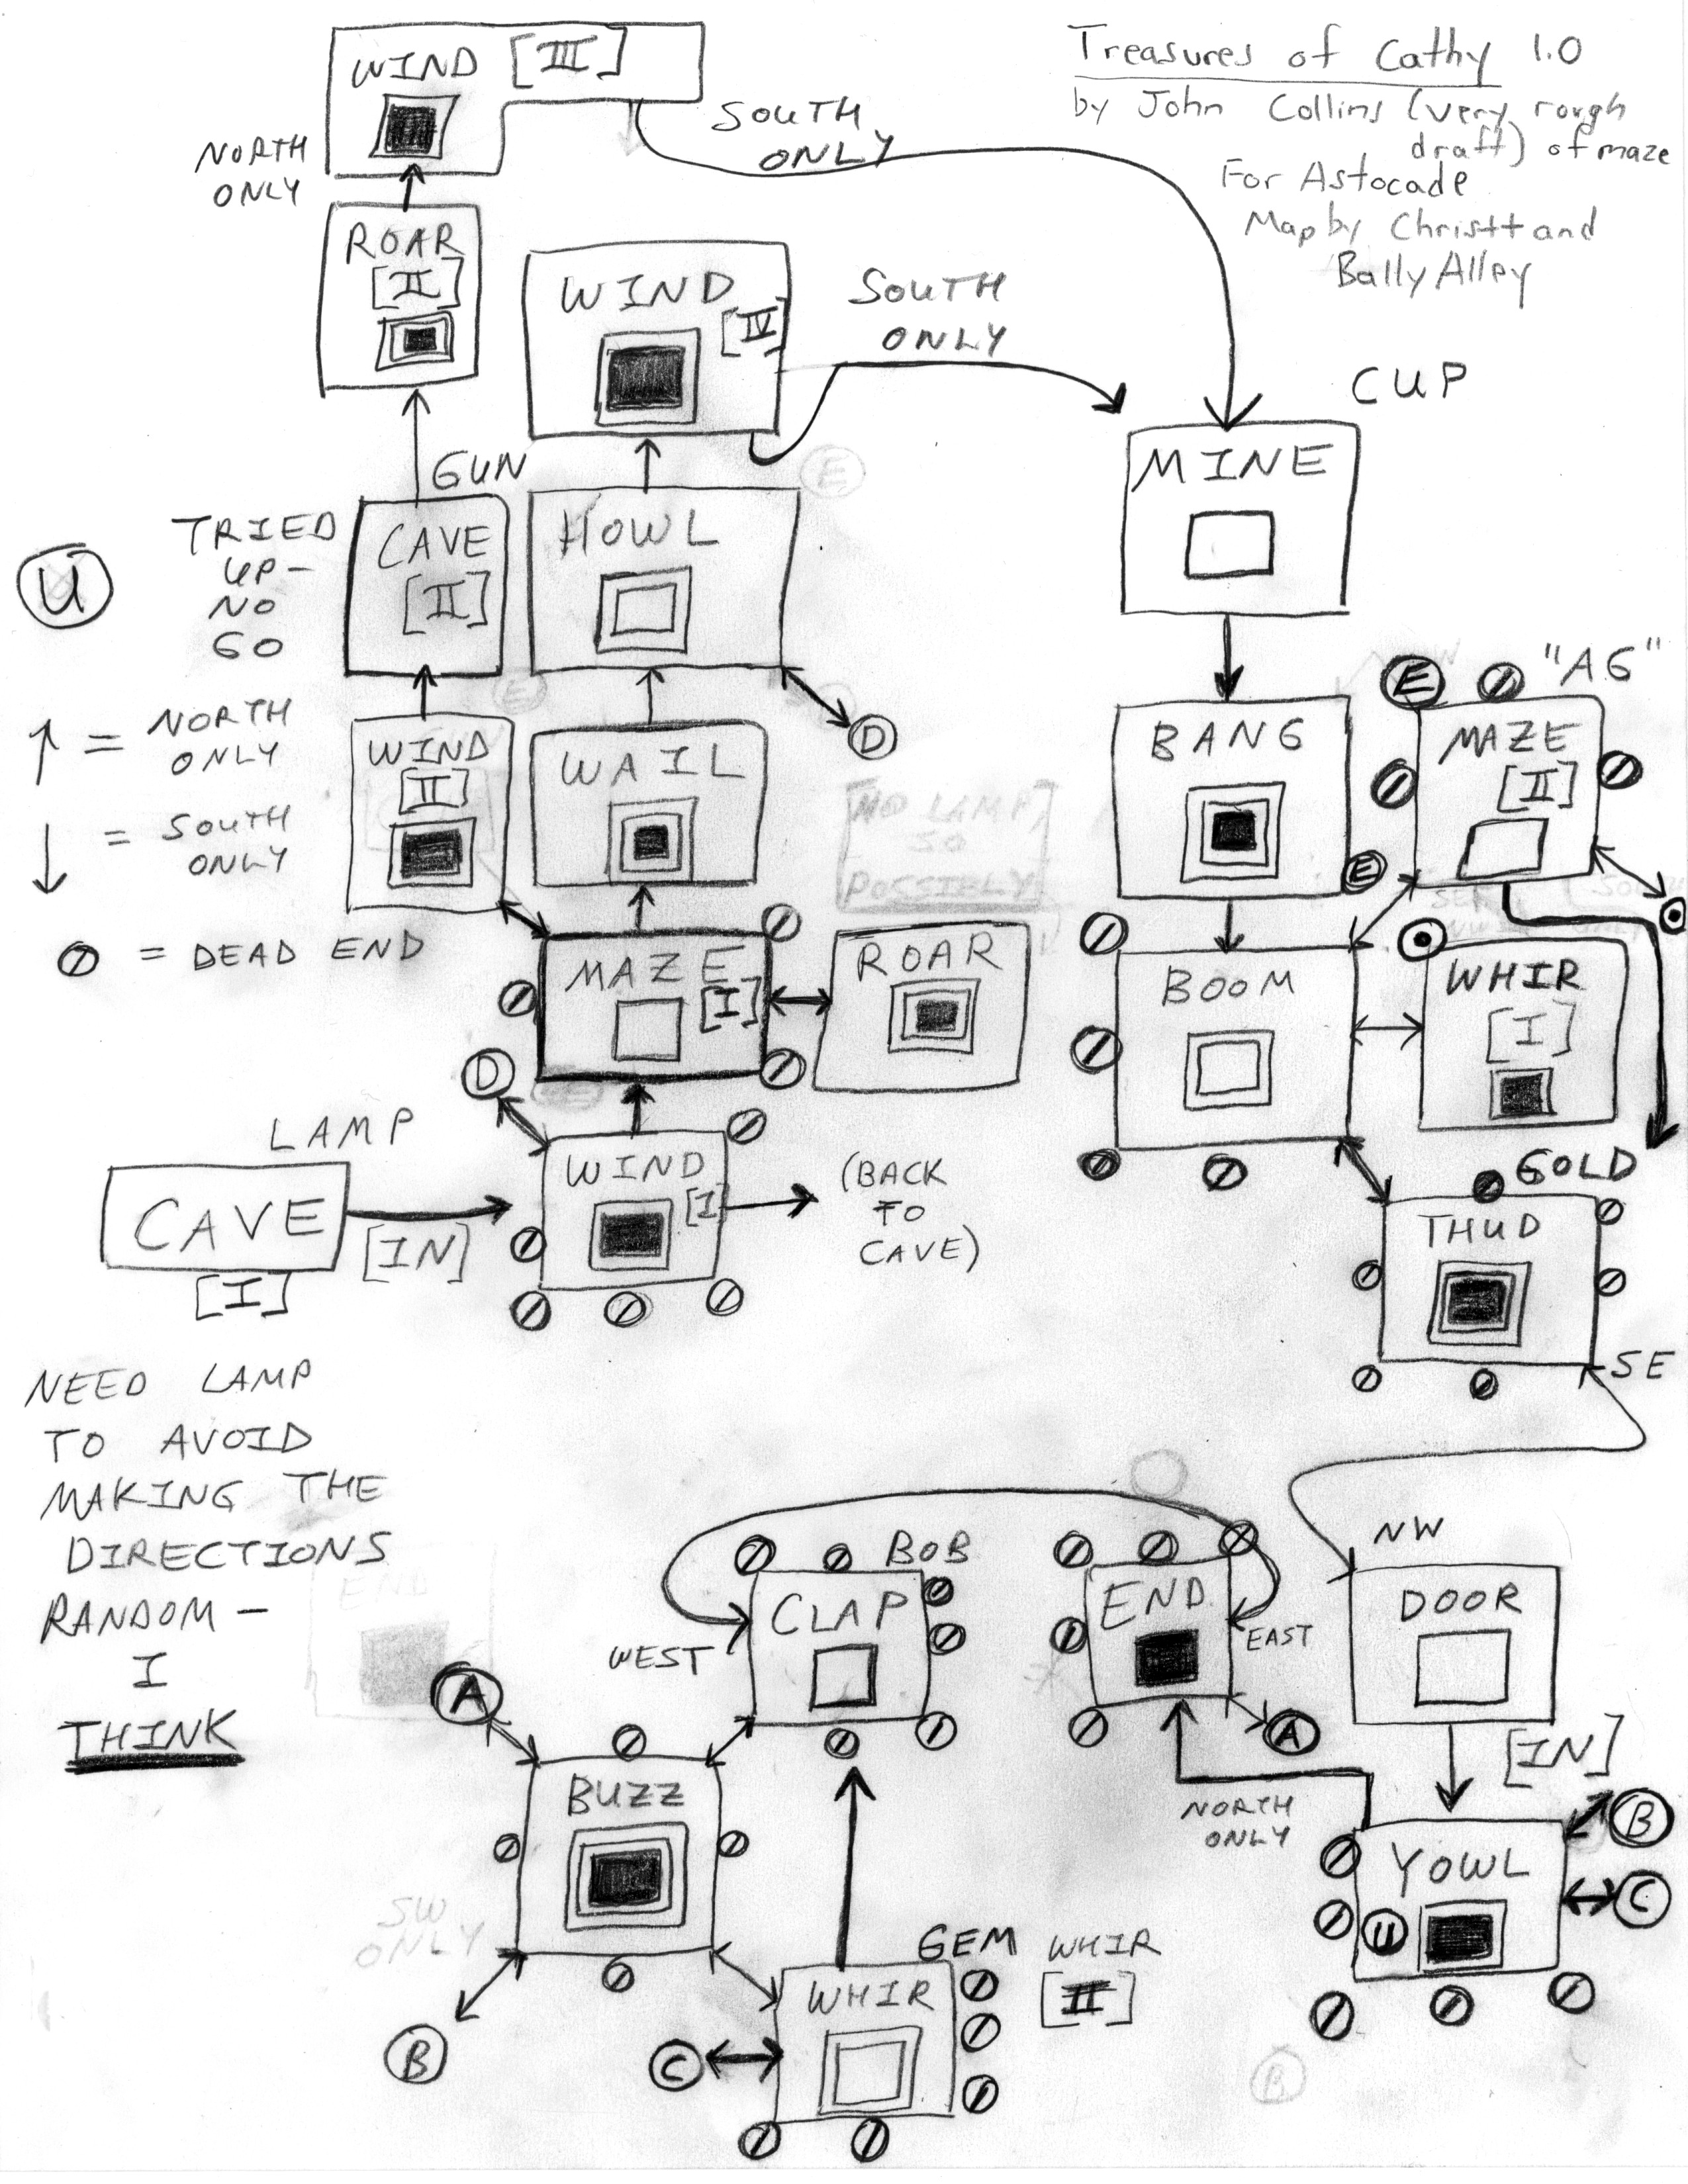 Treasures of Cathy 1.0
by John Collins (very rough
draft) of maze
For Astocade
Map by Christt and
Bally Alley
WIND [III]
NORTH
ONLY
SOUTH
ONLY
ROAR
[II]
WIND
[IV]
SOUTH
ONLY
CUP
MINE
GUN
U
TRIED
UP-
NO
GO
CAVE
[II]
HOWL
E
D
↑ = NORTH
ONLY
↓ = SOUTH
ONLY
Ø = DEAD END
WIND
[II]
WAIL
E
NO LAMP,
SO
POSSIBLY
BANG
E
E
"AG"
MAZE
[II]
MAZE
[I]
ROAR
BOOM
WHIR
[I]
D
LAMP
CAVE
[I]
[IN]
WIND
[I]
(BACK
TO
CAVE)
GOLD
THUD
SE
NEED LAMP
TO AVOID
MAKING THE
DIRECTIONS
RANDOM -
I
THINK
END
NW
BOB
CLAP
WEST
END
EAST
DOOR
[IN]
A
A
BUZZ
NORTH
ONLY
B
YOWL
C
U
SW
ONLY
GEM
WHIR
[II]
WHIR
B
C
B